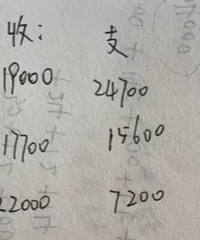 收： 支
19000 24700
17700 15600
22000 7200